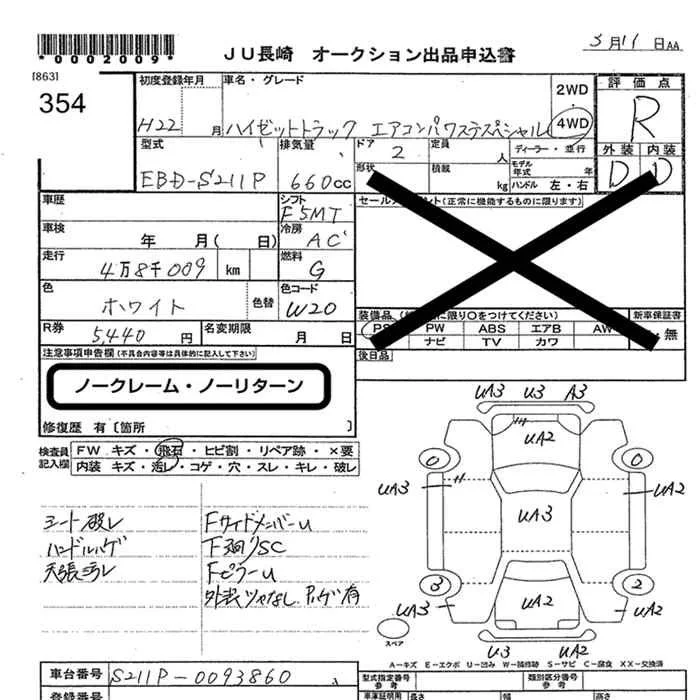 *0002009*
JU長崎 オークション出品申込書
5月11日AA
[863]
354
初度登録年月 車名・グレード
2WD
4WD
評価点
R
H22 月 ハイゼットトラック エアコンパワステスペシャル
外装 内装
D D
型式 排気量 ドア 定員 ディーラー・並行
EBD-S211P 660cc 2 人
形状 積載 モデル年式 年
kg ハンドル 左・右
車歴 シフト
F5MT
車検 年 月( 日) 冷房 AC
走行 4万8千009 km 燃料 G
色 ホワイト 色替 色コード W20
R券 5,440 円 名変期限 月 日
注意事項申告欄(不具合内容等は具体的に記入して下さい)
ノークレーム・ノーリターン
修復歴 有〔箇所 〕
(正常に機能するものに限ります)
装備品 に限り○をつけてください) 新車保証書
PS PW ABS エアB AW
ナビ TV カワ
無
後日品
検査員記入欄 FW キズ・飛石・ヒビ割・リペア跡・×要
内装 キズ・汚レ・コゲ・穴・スレ・キレ・破レ
シート破レ FサイドメンバーU
ハンドルハゲ 下廻りSC
天張汚レ FピラーU
外装ツヤなし ハゲ有
UA3 U3 A3
UA2
0 0
UA3 UA2
UA3
3 2
UA3 UA2 UA2
スペア
U3 UA3
A-キズ E-エクボ U-凹み W-補修跡 S-サビ C-腐食 XX-交換済
車台番号 S211P-0093860
型式指定番号 参考 類別区分番号 参考
登録番号
車庫証明用 長さ 幅 高さ